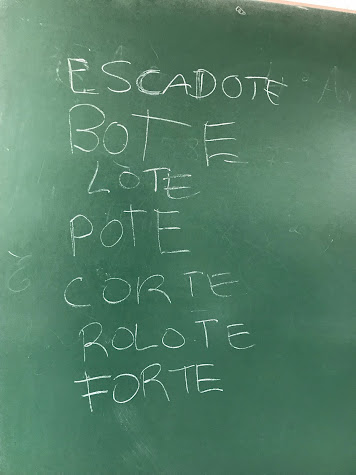 ESCADOTE
BOTE
LOTE
POTE
CORTE
ROLOTE
FORTE